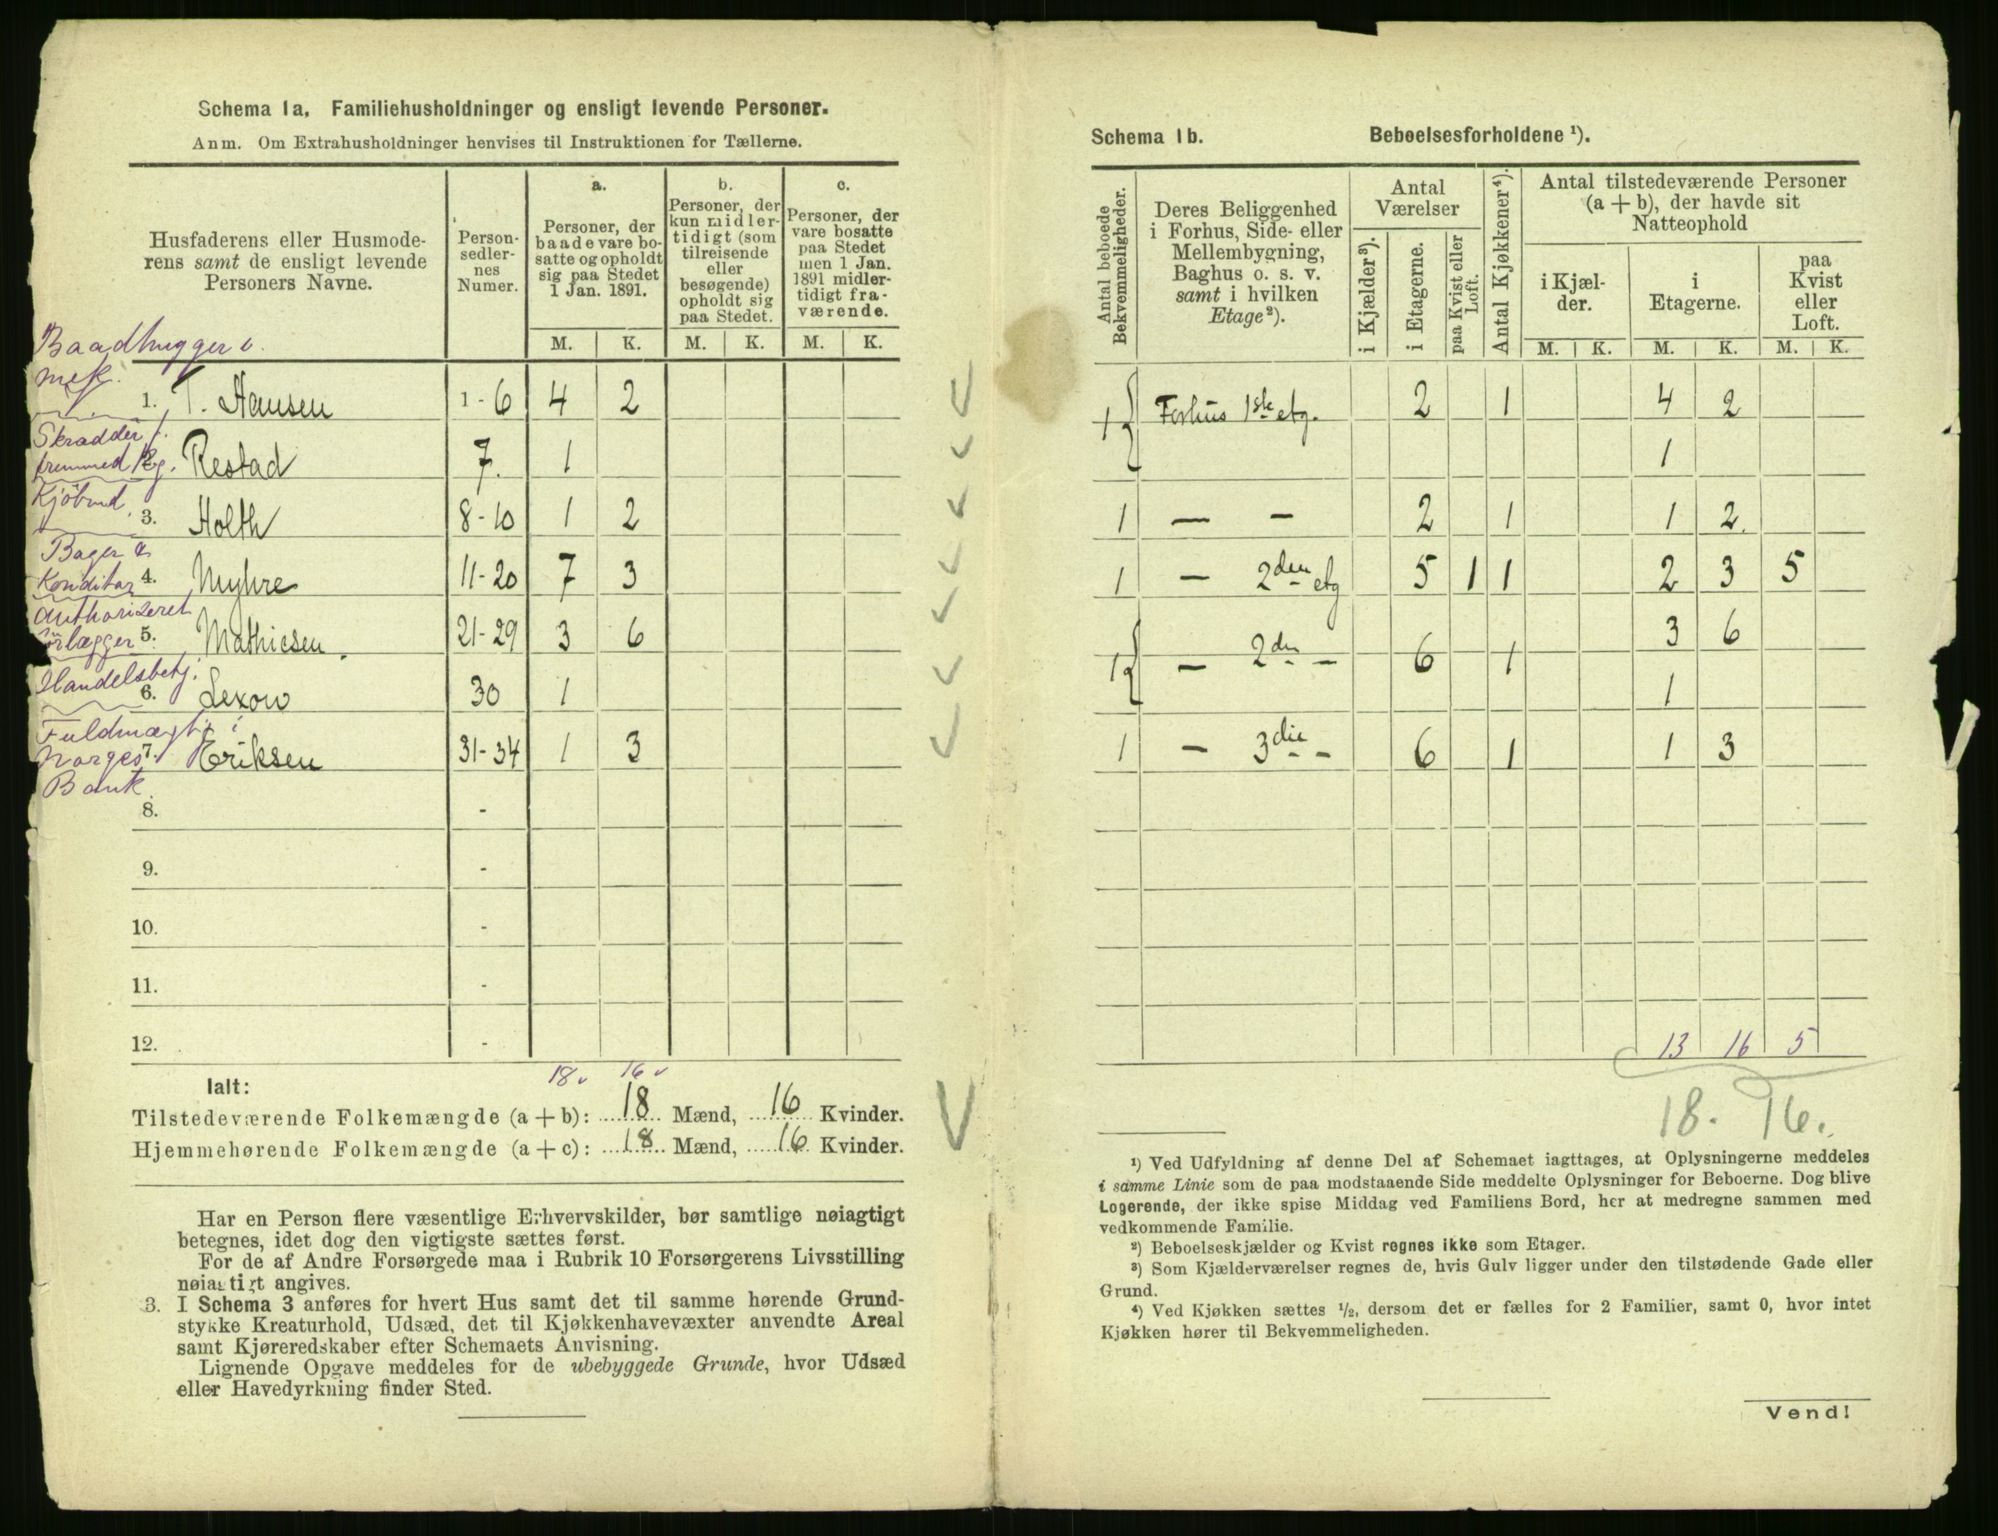 Schema 1a. Familiehusholdninger og ensligt levende Personer.
Anm. Om Extrahusholdninger henvises til Instruktionen for Tællerne.
Husfaderens eller Husmoderens samt de ensligt levende Personers Navne.
Person-sedlernes Numer.
a. Personer, der baade vare bosatte og opholdt sig paa Stedet 1 Jan. 1891.
b. Personer, der kun midlertidigt (som tilreisende eller besøgende) opholdt sig paa Stedet.
c. Personer, der vare bosatte paa Stedet men 1 Jan. 1891 midlertidigt fraværende.
M. K. M. K. M. K.
Baadbygger i
mek.
1. T. Hansen 1 - 6 4 2
Skrædder f.
fremmed Rg.
2. Restad 7. 1
Kjøbmd.
3. Holth 8 - 10 1 2
Bager &
Konditor
4. Myhre 11 - 20 7 3
Authoriseret
5. Mathiesen. 21 - 29 3 6
Handelsbetj.
6. Lexow 30 1
Fuldmægtig i
Norges
Bank.
7. Eriksen 31 - 34 1 3
8. -
9. -
10. -
11. -
12. -
18 16
Ialt:
Tilstedeværende Folkemængde (a + b): 18 Mænd, 16 Kvinder.
Hjemmehørende Folkemængde (a + c): 18 Mænd, 16 Kvinder.
Har en Person flere væsentlige Erhvervskilder, bør samtlige nøiagtigt
betegnes, idet dog den vigtigste sættes først.
For de af Andre Forsørgede maa i Rubrik 10 Forsørgerens Livsstilling
nøiagtigt angives.
3. I Schema 3 anføres for hvert Hus samt det til samme hørende Grund-
stykke Kreaturhold, Udsæd, det til Kjøkkenhavevæxter anvendte Areal
samt Kjøreredskaber efter Schemaets Anvisning.
Lignende Opgave meddeles for de ubebyggede Grunde, hvor Udsæd
eller Havedyrkning finder Sted.
Schema 1b. Beboelsesforholdene ¹).
Antal beboede Bekvemmeligheder.
Deres Beliggenhed i Forhus, Side- eller Mellembygning, Baghus o. s. v. samt i hvilken Etage ²).
Antal Værelser
i Kjælder ³).
i Etagerne.
paa Kvist eller Loft.
Antal Kjøkkener ⁴).
Antal tilstedeværende Personer (a + b), der havde sit Natteophold
i Kjælder.
i Etagerne.
paa Kvist eller Loft.
M. K. M. K. M. K.
1 { Forhus 1ste etg. 2 1 4 2
1
1 — — 2 1 1 2.
1 — 2den etg 5 1 1 2 3 5
3 6
1 { — 2den — 6 1
1
1 — 3die — 6 1 1 3
13 16 5
18. 16.
¹) Ved Udfyldning af denne Del af Schemaet iagttages, at Oplysningerne meddeles
i samme Linie som de paa modstaaende Side meddelte Oplysninger for Beboerne. Dog blive
Logerende, der ikke spise Middag ved Familiens Bord, her at medregne sammen med
vedkommende Familie.
²) Beboelseskjælder og Kvist regnes ikke som Etager.
³) Som Kjælderværelser regnes de, hvis Gulv ligger under den tilstødende Gade eller
Grund.
⁴) Ved Kjøkken sættes ½, dersom det er fælles for 2 Familier, samt 0, hvor intet
Kjøkken hører til Bekvemmeligheden.
Vend!